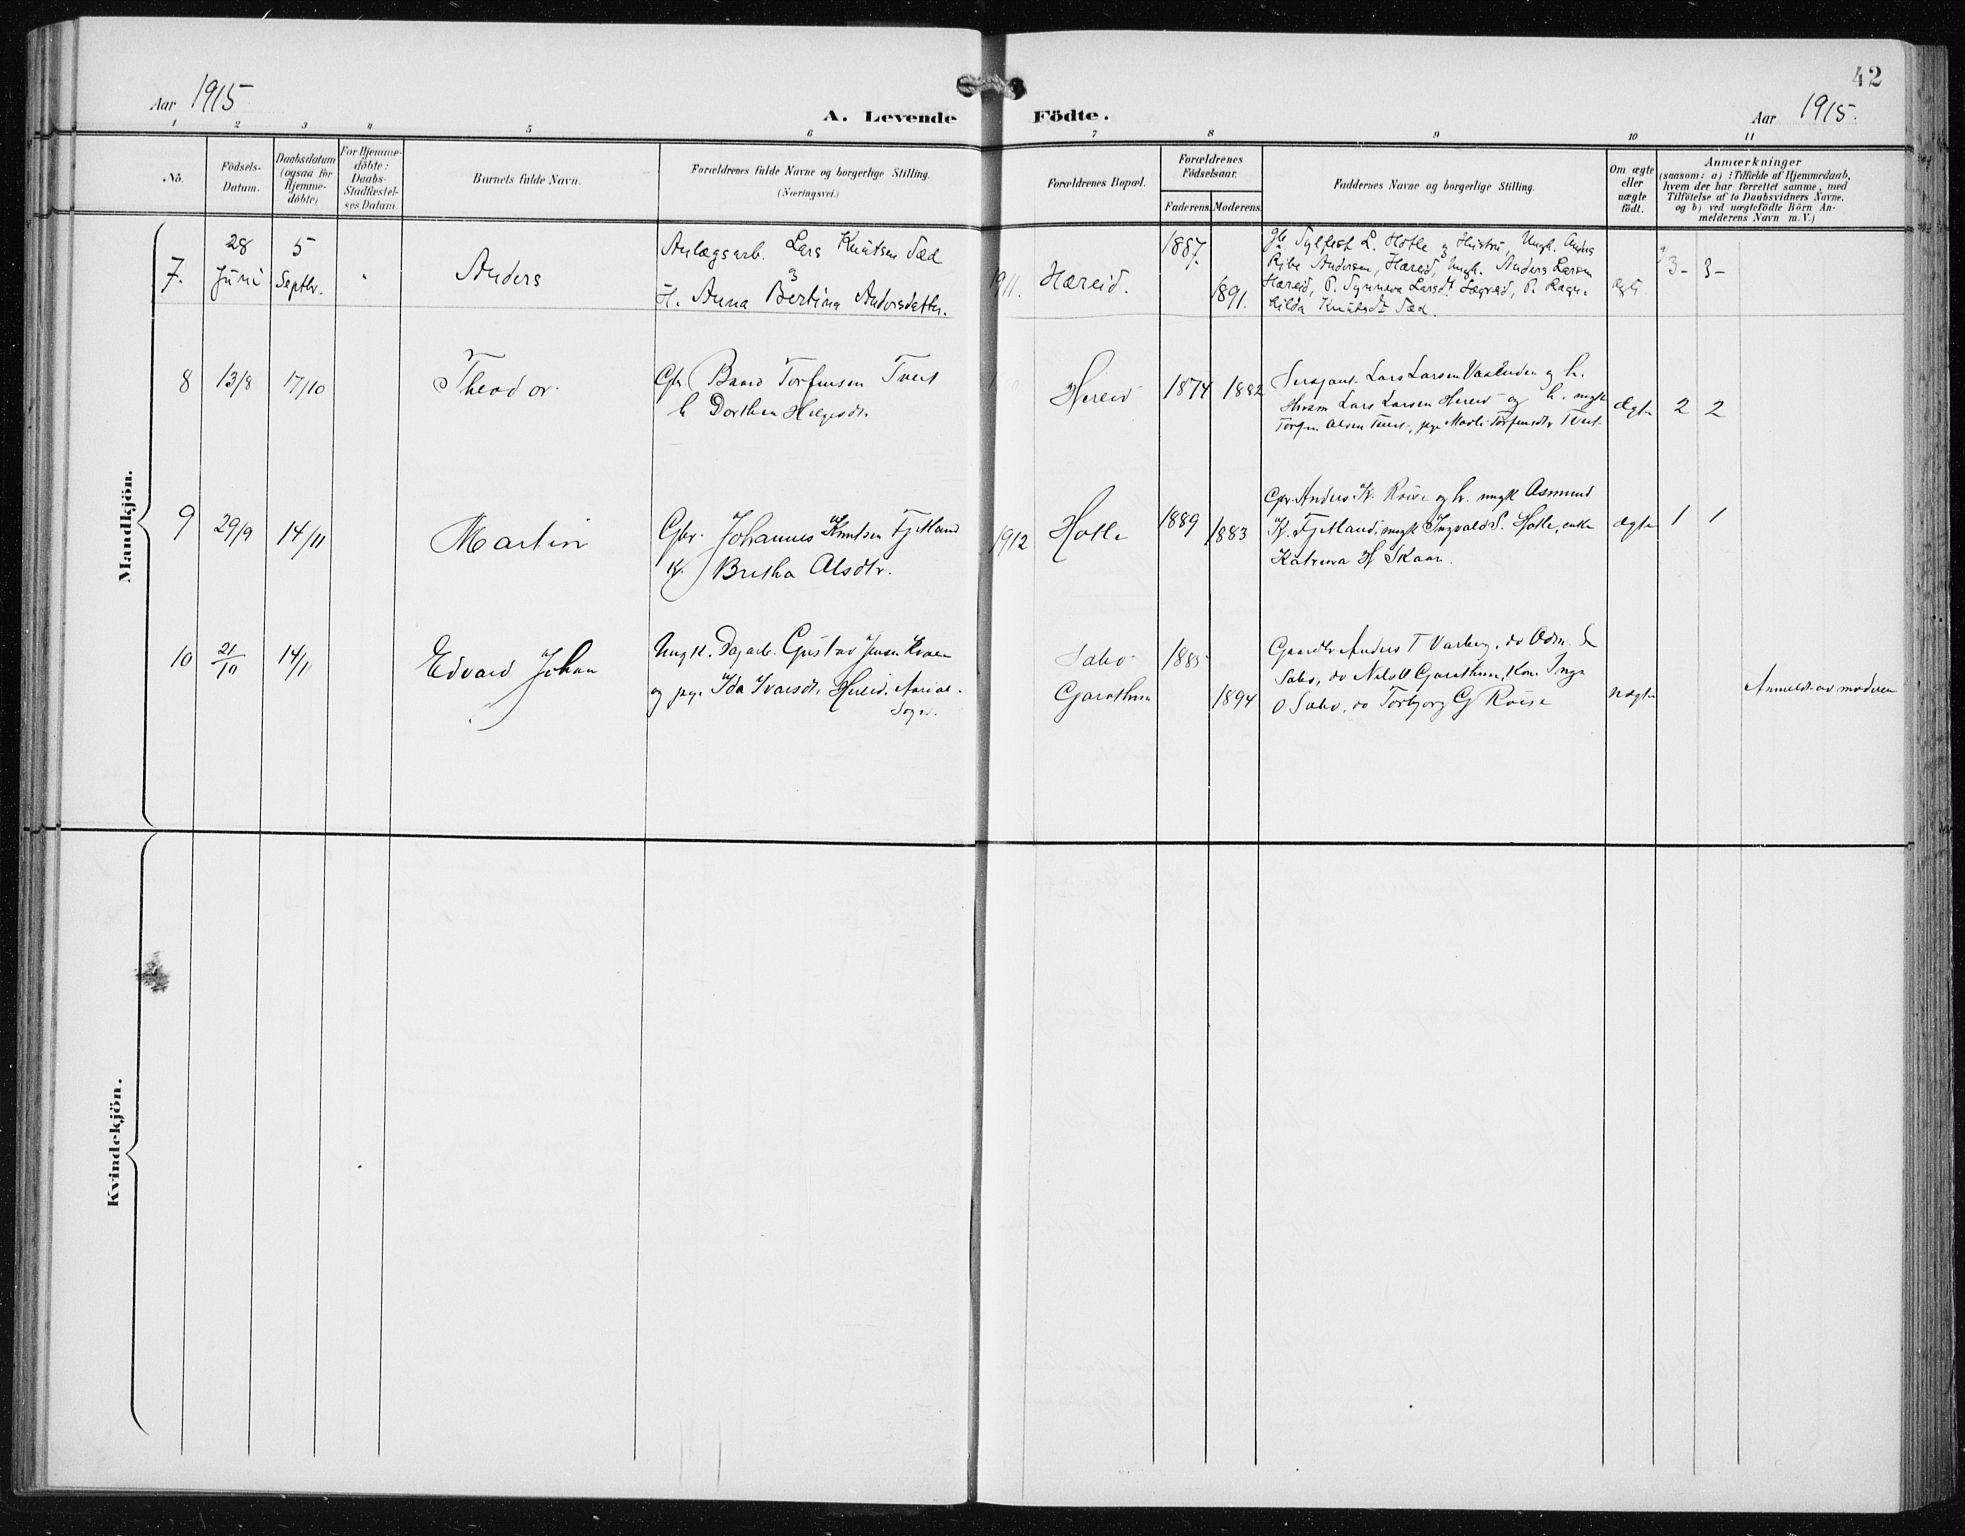 42
Aar 1915
A. Levende Födte.
Aar 1915.
1 2 3 4 5 6 7 8 9 10 11
No.
Födsels-Datum.
Daabsdatum (ogsaa for Hjemme-döbte)
For Hjemme-döbte: Daabs-Stadfæstel-ses Datum.
Barnets fulde Navn.
Forældrenes fulde Navne og borgerlige Stilling.
(Næringsvei.)
Forældrenes Bopæl.
Forældrenes Födselsaar.
Faderens. Moderens.
Faddernes Navne og borgerlige Stilling.
Om ægte eller uægte födt.
Anmærkninger
(saasom: a) i Tilfælde af Hjemmedaab,
hvem der har forrettet samme, med
Tilföielse af to Daabsvidners Navne.
og b) ved uægtefödte Börn An-
melderens Navn m.V.)
Mandkjön.
7. 28 Juni 5 Septbr. " Anders
Anlægsarb. Lars Knutsen Sæd
H. Anna Bertina Andersdatter.
1911. Hæreid. 1887. 1891.
gb. Sylfest L. Hotle og Hustru, Ungk. Anders
Andersen, Hæreid, Ungk. Anders Larsen
Hæreid, P. Synneva Larsdt. Sægreid, P. Ragn-
hilda Knutsdt. Sæd.
ægte 3- 3-
8 13/8 17/10 Theodor
Gbr. Baard Torfinsen Tveit
h Dorthea Helgesdtr.
Hereid 1874 1882
Sersjant Lars Larsen og h.
Lars Larsen Hereid og h. ungk
Torfin Olsen Tveit, pge Torfinsdtr Tveit
Ægte 2 2
9 29/9 14/11 Martin
Gbr. Johannes Knutsen Fjetland
H. Britha Olsdtr.
1912 Hotle 1889 1883
Gbr. Anders K. Röise og h. ungk Asmund
K. Fjetland, ungk Ingvald S. Hotle, enke
Katrina H Skaar.
ægte 1 1
10 21/10 14/11 Edvard Johan
Ungk. Dagarb. Gustav Jensen
og pge. Ida Ivarsdtr Hereid.
Sogn.
Sæbö
Garathun
1885 1894
Gaardbr Anders T Varberg, do Odm. S
Sæbö, do Nils O Garathun, Kone Inga
O Sæbö, do Torbjorg G Röise
uægte
Anmeldt av moderen
Kvindekjön.